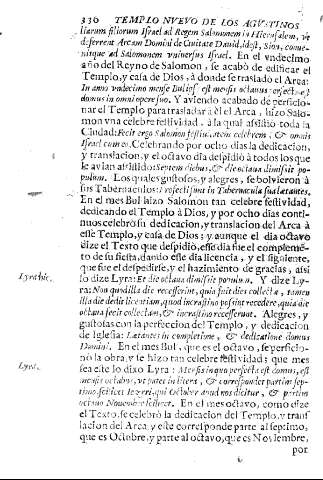 330 TEMPLO NVEVO DE LOS AGVSTINOS
liarum filiorum Israel ad Regem Salomonem in Hierusalem, vt
deferrent Arcam Domini de Ciuitate Dauid, idest, Sion, conue-
nitque ad Salomonem vniuersus Israel. En el vndecimo
año del Reyno de Salomon, se acabò de edificar el
Templo, y casa de Dios, à donde se trasladò el Area:
In anno vndecimo mense Bul ipse est mensis octauus perfecta est
domus in omni opere suo. Y aviendo acabado de perficio-
nar el Templo para trasladar à èl el Arca, hizo Salo-
mon vna celebre festividad, à la qual assistiò toda la
Ciudad: Fecit ergo Salomon festiuitatem celebrem, & omnis
Israel cum eo. Celebrando por ocho dias la dedicacion,
y translacion, y el octavo dia despidiò à todos los que
le avian assistido: Septem diebus, & die octaua dimissit po-
pulum. Los quales gustosos, y alegres, se bolvieron à
sus Tabernaculos: Profecti sunt in Tabernacula sua lætantes.
En el mes Bul hizo Salomon tan celebre festividad,
dedicando el Templo à Dios, y por ocho dias conti-
nuos celebrò su dedicacion, y translacion del Arca à
este Templo, y casa de Dios: y aunque el dia octavo
dize el Texto que despidiò, esse dia fue el compleme-
to de su fiesta, dando esse dia licencia, y el siguiente,
que fue el despedirse, y el hazimiento de gracias, assi
lo dize Lyra: Et die octaua dimissit populum. Y dize Ly-
ra: Non quod illa die recesserint, quia fuit dies collectæ, tamen
illa die dedit licentiam, quod in crastino possint recedere, quia die
octaua fecit collectam, & in crastino recesserunt. Alegres, y
gustosas con la perfeccion del Templo, y dedicacion
de Iglesia: Lætantes in completione, & dedicatione domus
Domini. En el mes Bul, que es el octavo, se perficio-
nò la obra, y se hizo tan celebre festividad; que mes
sea este lo dixo Lyra: Mensis in quo perfecta est domus, est
mensis octauus, vt patet in litera, & correspondet partim sep-
timo, scilicet qui October apud nos dicitur, & partim
octauo Nouembri scilicet. En el mes octavo, como dize
el Texto, se celebrò la dedicacion del Templo, y transf
lacion del Arca, y este corresponde parte al septimo,
que es Octubre, y parte al octavo, que es Noviembre,
por
Lyra hic.
Lyra.